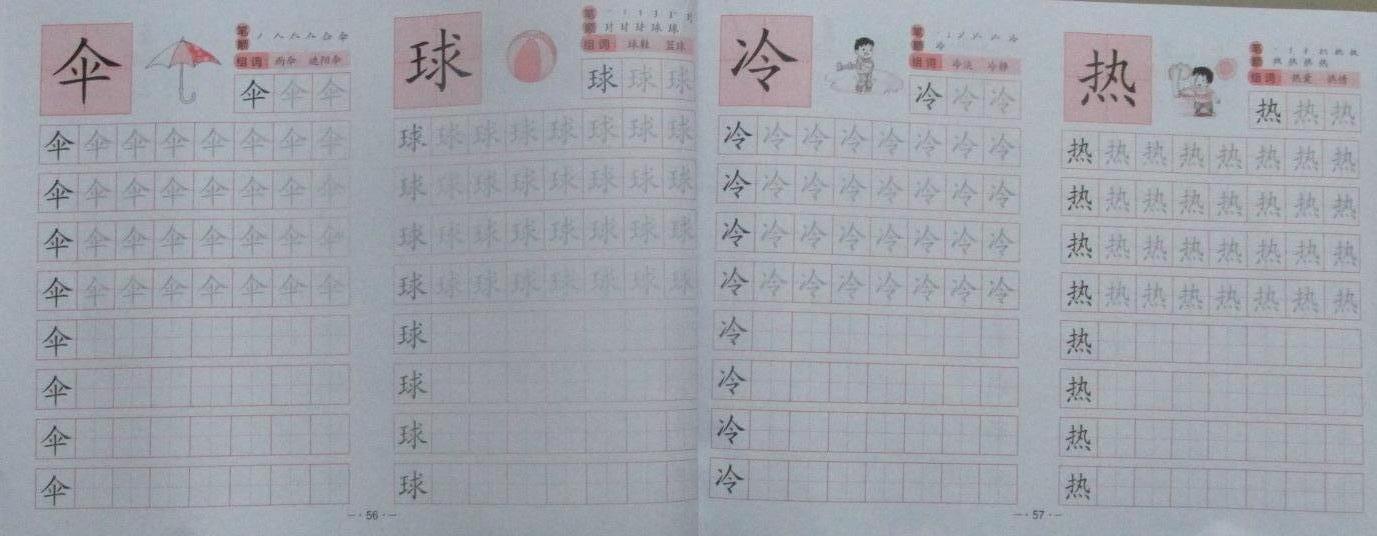 伞
笔顺
组词 雨伞 遮阳伞
伞伞伞
伞伞伞伞伞伞伞伞
伞伞伞伞伞伞伞伞
伞伞伞伞伞伞伞伞
伞伞伞伞伞伞伞伞
伞
伞
伞
伞
球
笔顺
组词 球鞋 篮球
球球球
球球球球球球球球
球球球球球球球球
球球球球球球球球
球球球球球球球球
球
球
球
球
56
冷
笔顺
组词 冷淡 冷静
冷冷冷
冷冷冷冷冷冷冷冷
冷冷冷冷冷冷冷冷
冷冷冷冷冷冷冷冷
冷冷冷冷冷冷冷冷
冷
冷
冷
冷
热
笔顺
组词 热爱 热情
热热热
热热热热热热热热
热热热热热热热热
热热热热热热热热
热热热热热热热热
热
热
热
热
57